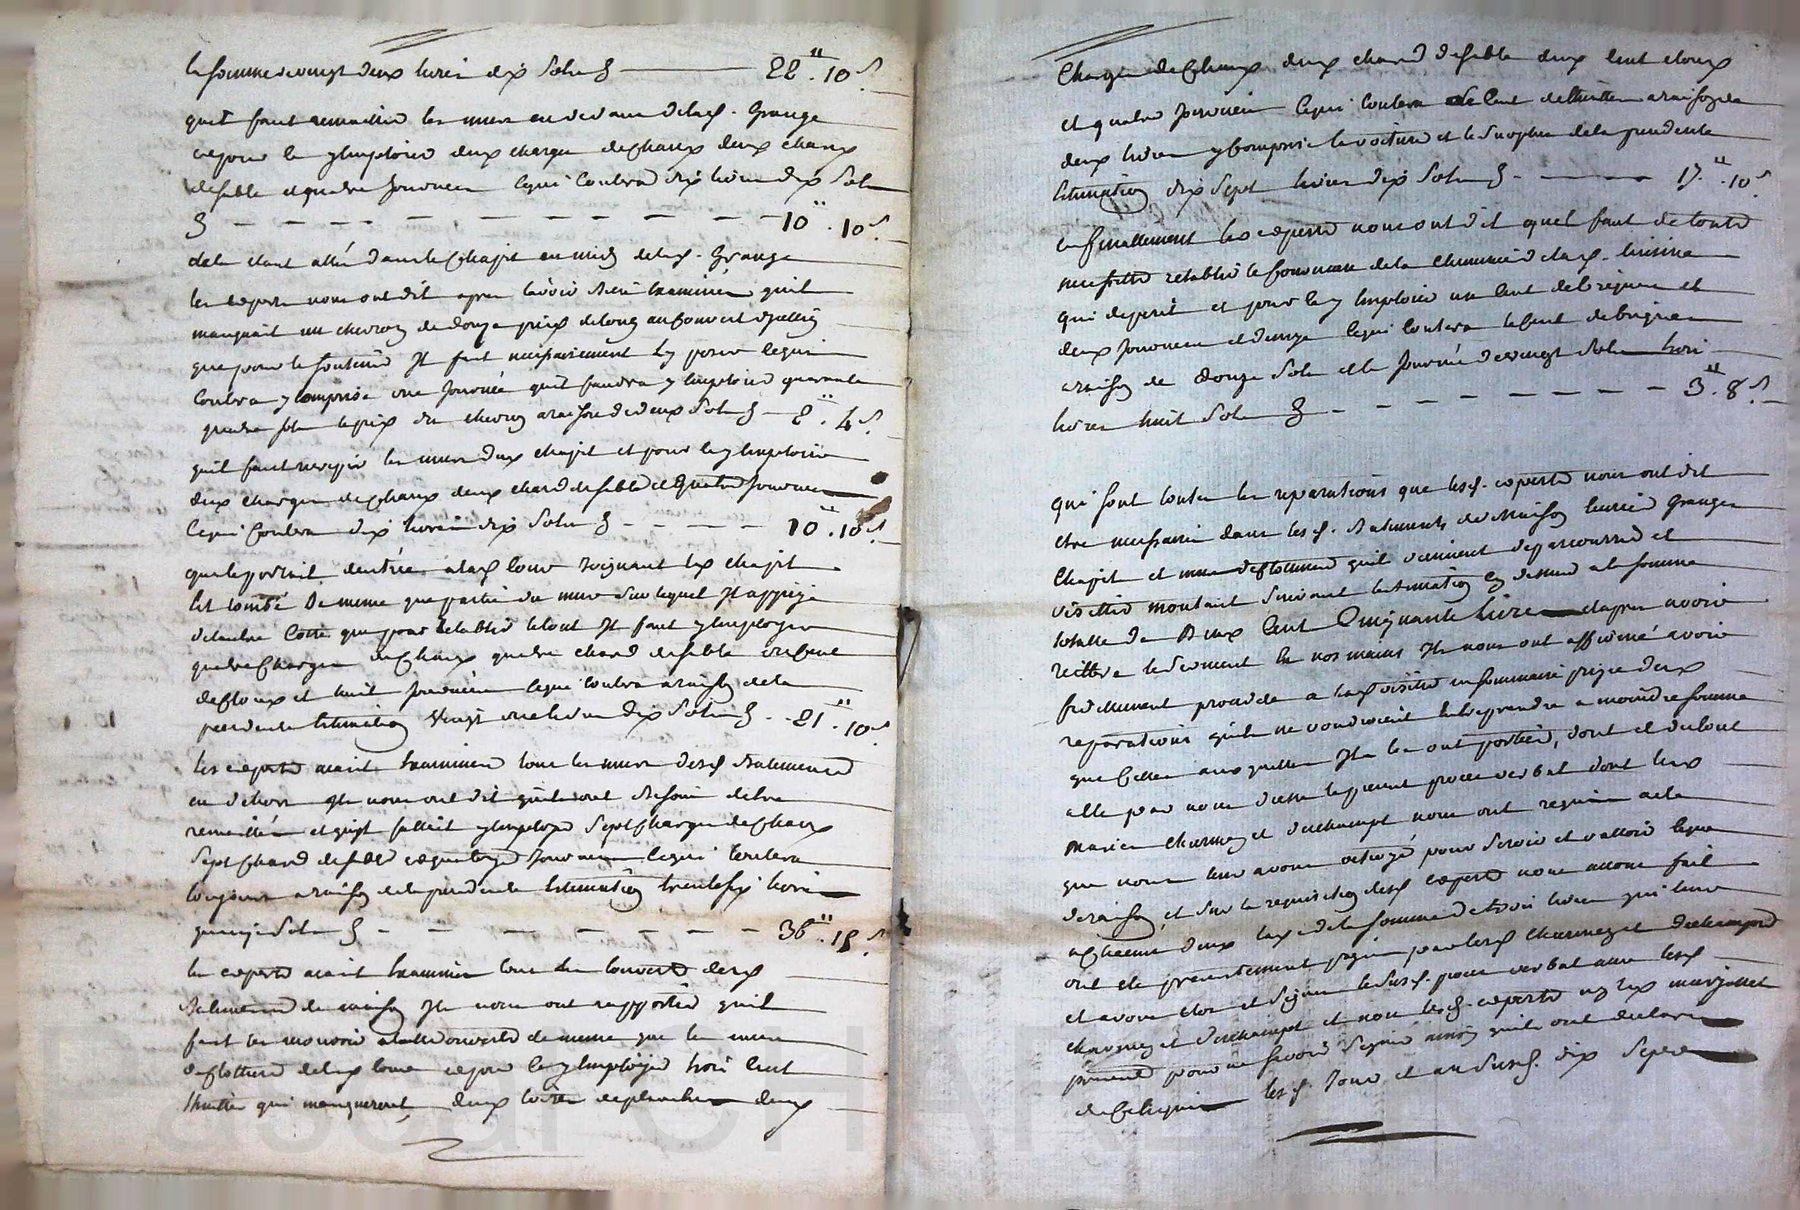 la somme de vingt deux livres dix sols 22".10s.
quil faut remaillier les murs en dedans de lad. Grange
et pour le y Employer deux charges de Chaux deux chars
de sable et quatre Journées ce qui Coutera dix livres dix sols
10".10s.
de la étant allé dans le Chapit au midy de lad. Grange
les experts nous ont dit apres l'avoir bien Examiné quil
manquait un chevron de douze pieds de long au Couvert dicelluy
que pour le soutenir Il faut necessairement L'y poser ce qui
Coutera y compris une Journée quil faudra y Employer quarante
quatre sols le prix du chevron a raison de deux sols 2".4s.
quil faut recrepir les murs dud. chapit et pour le y Employer
deux charges de Chaux deux chars de sable et Quatre Journées
Ce qui Coutera dix livres dix sols 10".10s.
que le portail dentrée a lad. Cour Joignant led. chapit
Est tombé De meme que partie du mur sur lequel Il appuye
d'autre Coté que pour retablir le tout Il faut y Employer
quatre Charges de Chaux quatre chars de sable un Cent
de Cloux et huit Journées ce qui Coutera a raison de la
precedente Estimation Vingt une livres Dix sols 21".10s.
Les experts ayant Examiné tous les murs desd. Batiments
en dehors Ils nous ont dit quils ont Besoin detre
remaillés et quil fallait y Employer sept Charges de Chaux
sept Chars de sable et quatorze Journées ce qui Coutera
toujours a raison de la precedente Estimation trente six livres
quinze sols 36".15s.
les experts ayant Examiné tous les Couverts desd.
Batiments de maison Ils nous ont rapporté quil
faut les recouvrir a taille ouverte de meme que les murs
de Clotture de lad. Cour et pour le y Employer trois Cent
thuilles qui manqueront, deux toises de planches deux
Charges de Chaux deux chars de sable deux Cent cloux
et quatre Journées Ce qui Coutera le Cent de thuilles a raison de
deux livres y Compris la voiture et le surplus de la precedente
Estimation dix sept livres dix sols 17".10s.
et finallement les experts nous ont dit quil faut de toute
necessité retablir le Couronement de la Cheminée de lad. Cuisine
qui deperit et pour le y Employer un Cent de briques et
deux Journées et demye ce qui Coutera le Cent de briques
a raison de Douze sols et la Journée de vingt sols trois
livres huit sols 3".8s.
qui sont toutes les reparations que lesd. experts nous ont dit
etre necessaires dans lesd. Batiments de Maison Ecurie Granges
Chapit et murs de Clotture quils viennent de parcourrir et
visitter montant suivant lestimation Cy dessus a la somme
totalle de Deux Cent Cinquante Livres et apres avoir
reittéré le serment En nos mains Ils nous ont affirmé avoir
fidellement procedé a lad. visitte en sommaire prisée desd.
reparations quils ne voudroient Entreprendre a moindre somme
que Celles auxquelles Ils les ont portées, dont et du tout
a été par nous dressé le present proces verbal dont lesd.
Mariés Charmet et duchampt nous ont requis acte
que nous leur avons octroyé pour servir et valloir ce que
de raison, et sur la requisition desd. experts nous avons fait
a Chacun deux taxe de la somme de trois livres qui leur
ont été presentement payés par lesd. Charmet et duchampt
et avons clos et signé le susd. proces verbal avec lesd.
Charmet et duchampt et non lesd. experts
pour ne savoir signer ainsy quils ont declaré
de Ce Enquis lesd. Jour et an susd. dix sept